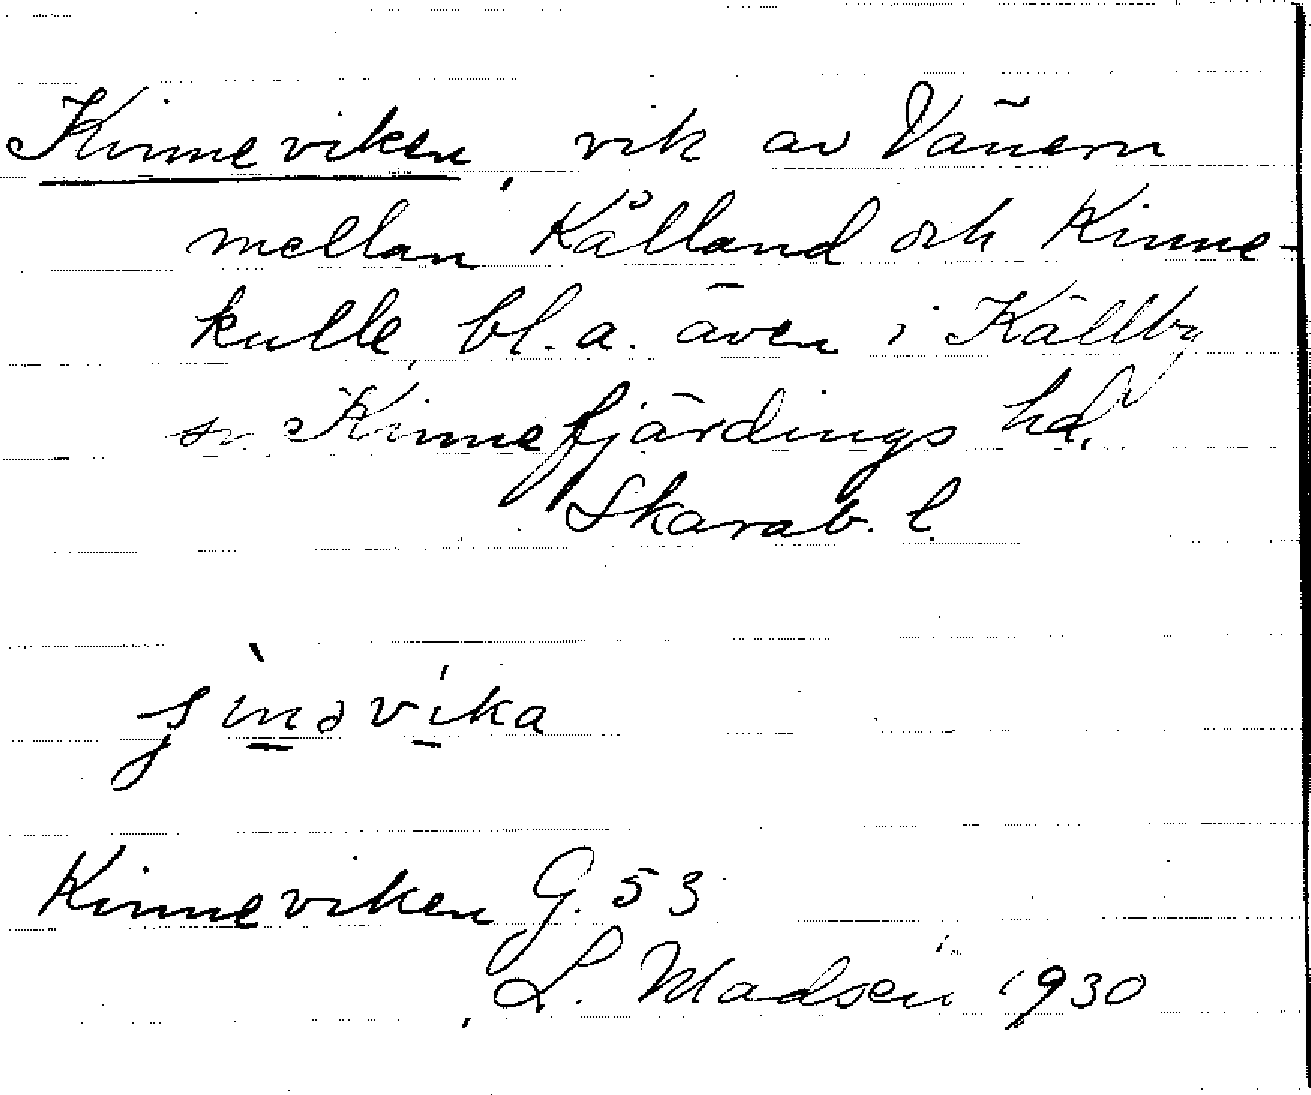 Kinneviken, vik av Vänern
mellan Kålland och Kinne-
kulle, bl.a. även i Källby
sn Kinnefjärdings hd,
Skarab. l.
ʃìnəvíka
Kinneviken G. 53
L. Madsén 1930